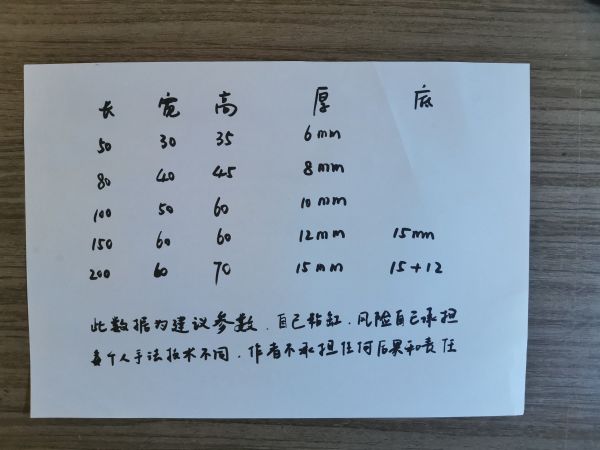 长 宽 高 厚 底
50 30 35 6mm
80 40 45 8mm
100 50 60 10mm
150 60 60 12mm 15mm
200 60 70 15mm 15+12
此数据为建议参数.自己粘缸.风险自己承担
每个人手法技术不同.作者不承担任何后果和责任